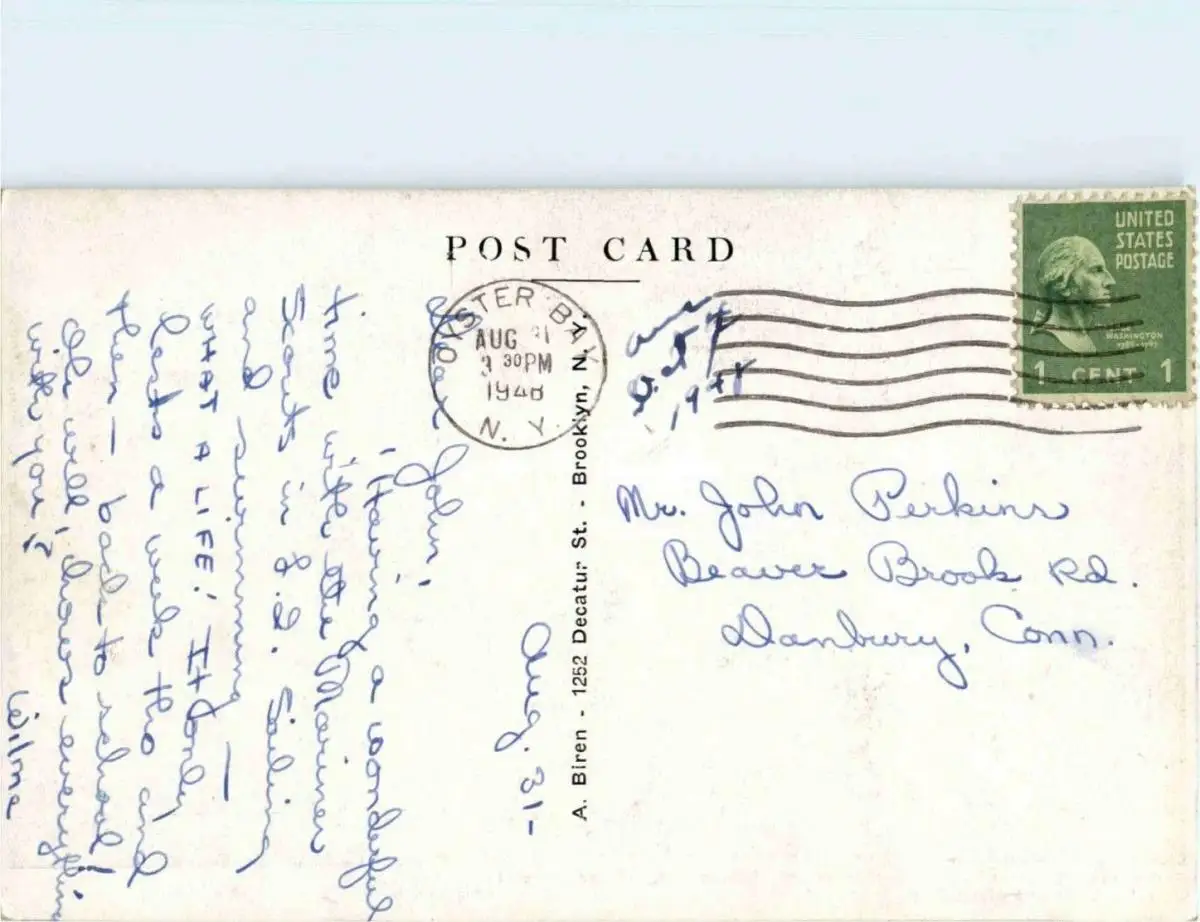 POST CARD
UNITED
STATES
POSTAGE
WASHINGTON
1789-1797
1 CENT 1
OYSTER BAY
AUG 31
3 30 PM
1948
N. Y.
1948
Mr. John Perkins
Beaver Brook Rd.
Danbury, Conn.
A. Biren - 1252 Decatur St. - Brooklyn, N. Y.
Aug. 31-
Dear John,
Having a wonderful
time with the Mariner
Scouts in L.I. Sailing
and swimming —
WHAT A LIFE! It only
lasts a week tho and
then — back to school!
Oh well, hows everything
with you?
Wilma